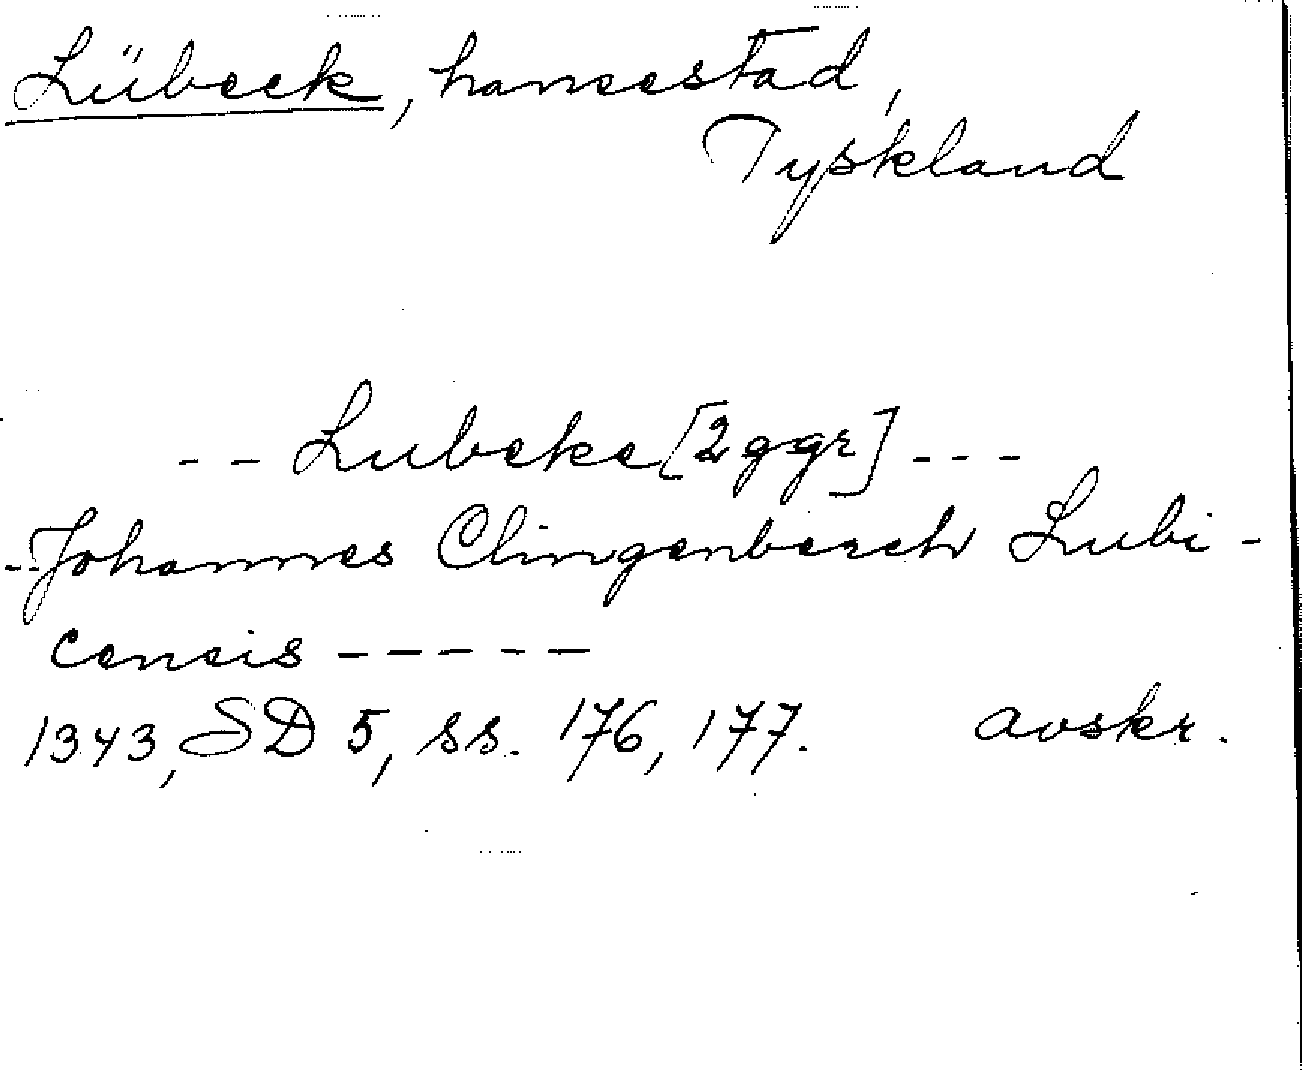 Lübeck, hansestad,
Tyskland
-- Lubeke [2 ggr] ---
--Johannes Clingenberch Lubi-
censis -----
1343, SD 5, ss. 176, 177. avskr.